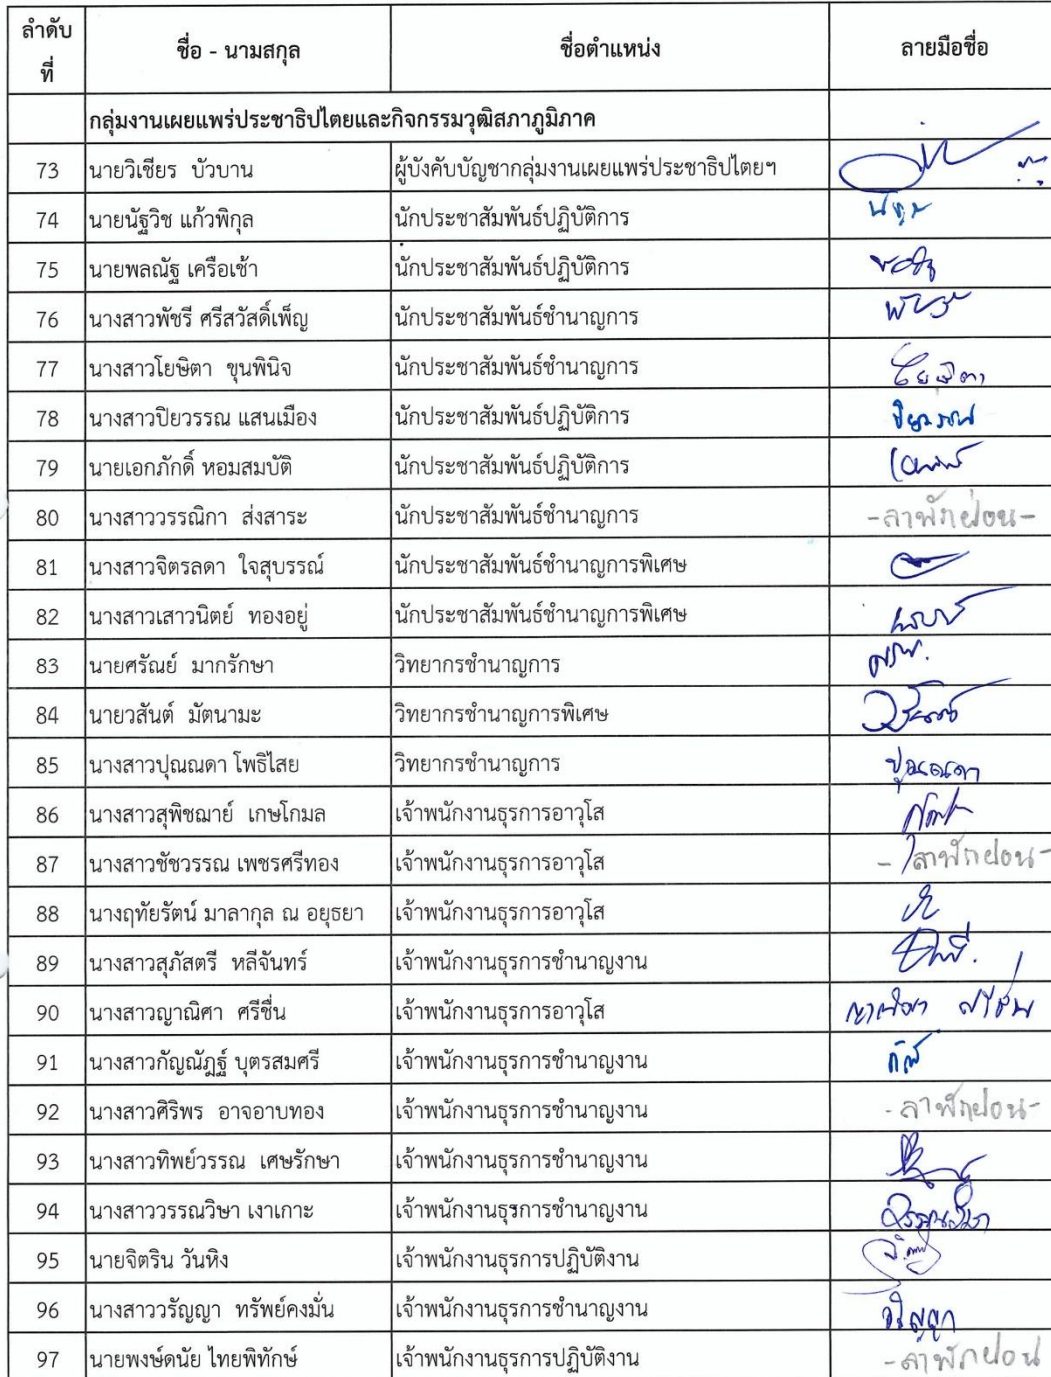 ลำดับ
ที่
ชื่อ - นามสกุล
ชื่อตำแหน่ง
ลายมือชื่อ
กลุ่มงานเผยแพร่ประชาธิปไตยและกิจกรรมวุฒิสภาภูมิภาค
73 นายวิเชียร บัวบาน ผู้บังคับบัญชากลุ่มงานเผยแพร่ประชาธิปไตยฯ
74 นายนัฐวิช แก้วพิกุล นักประชาสัมพันธ์ปฏิบัติการ
75 นายพลณัฐ เครือเช้า นักประชาสัมพันธ์ปฏิบัติการ
76 นางสาวพัชรี ศรีสวัสดิ์เพ็ญ นักประชาสัมพันธ์ชำนาญการ
77 นางสาวโยษิตา ขุนพินิจ นักประชาสัมพันธ์ชำนาญการ โยษิตา
78 นางสาวปิยวรรณ แสนเมือง นักประชาสัมพันธ์ปฏิบัติการ ปิยวรรณ
79 นายเอกภักดิ์ หอมสมบัติ นักประชาสัมพันธ์ปฏิบัติการ
80 นางสาววรรณิกา ส่งสาระ นักประชาสัมพันธ์ชำนาญการ -ลาพักผ่อน-
81 นางสาวจิตรลดา ใจสุบรรณ์ นักประชาสัมพันธ์ชำนาญการพิเศษ
82 นางสาวเสาวนิตย์ ทองอยู่ นักประชาสัมพันธ์ชำนาญการพิเศษ
83 นายศรัณย์ มากรักษา วิทยากรชำนาญการ
84 นายวสันต์ มัตนามะ วิทยากรชำนาญการพิเศษ
85 นางสาวปุณณดา โพธิไสย วิทยากรชำนาญการ ปุณณดา
86 นางสาวสุพิชฌาย์ เกษโกมล เจ้าพนักงานธุรการอาวุโส
87 นางสาวชัชวรรณ เพชรศรีทอง เจ้าพนักงานธุรการอาวุโส - ลาพักผ่อน-
88 นางฤทัยรัตน์ มาลากุล ณ อยุธยา เจ้าพนักงานธุรการอาวุโส
89 นางสาวสุภัสตรี หลีจันทร์ เจ้าพนักงานธุรการชำนาญงาน
90 นางสาวญาณิศา ศรีชื่น เจ้าพนักงานธุรการอาวุโส ญาณิศา ศรีชื่น
91 นางสาวกัญณัฎฐ์ บุตรสมศรี เจ้าพนักงานธุรการชำนาญงาน
92 นางสาวศิริพร อาจอาบทอง เจ้าพนักงานธุรการชำนาญงาน - ลาพักผ่อน-
93 นางสาวทิพย์วรรณ เศษรักษา เจ้าพนักงานธุรการชำนาญงาน
94 นางสาววรรณวิษา เงาเกาะ เจ้าพนักงานธุรการชำนาญงาน
95 นายจิตริน วันหิง เจ้าพนักงานธุรการปฏิบัติงาน
96 นางสาววรัญญา ทรัพย์คงมั่น เจ้าพนักงานธุรการชำนาญงาน
97 นายพงษ์ดนัย ไทยพิทักษ์ เจ้าพนักงานธุรการปฏิบัติงาน -ลาพักผ่อน